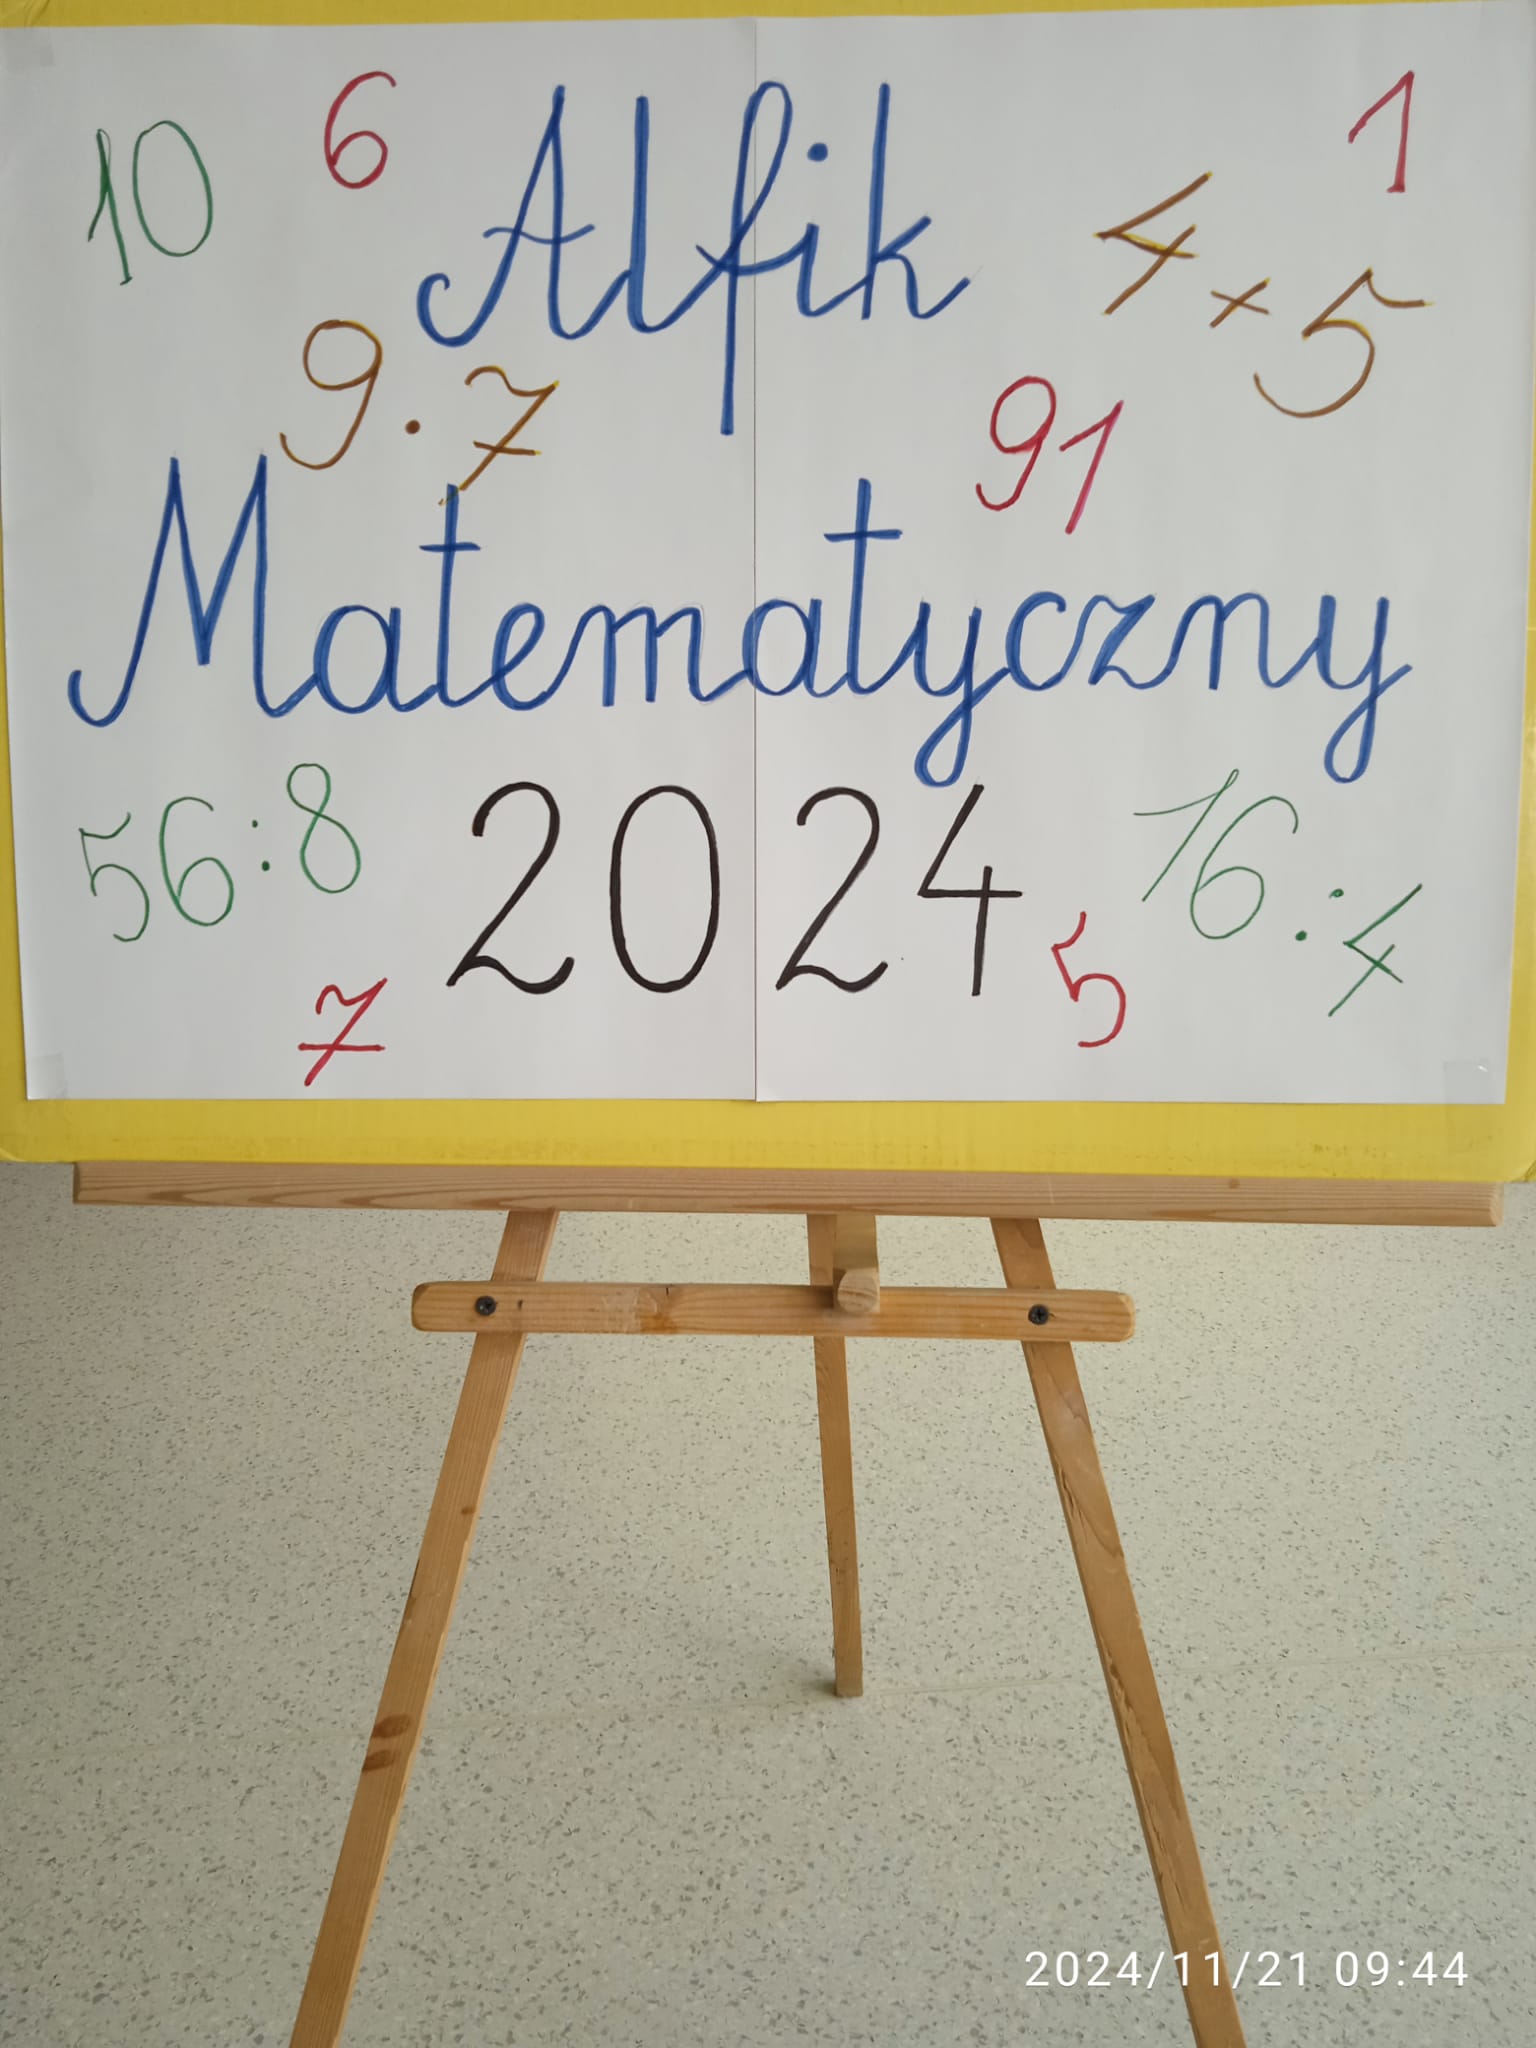 10 6 1
Alfik
4 × 5
9 . 7
91
Matematyczny
56 : 8
2024
16 : 4
7
5
2024/11/21 09:44